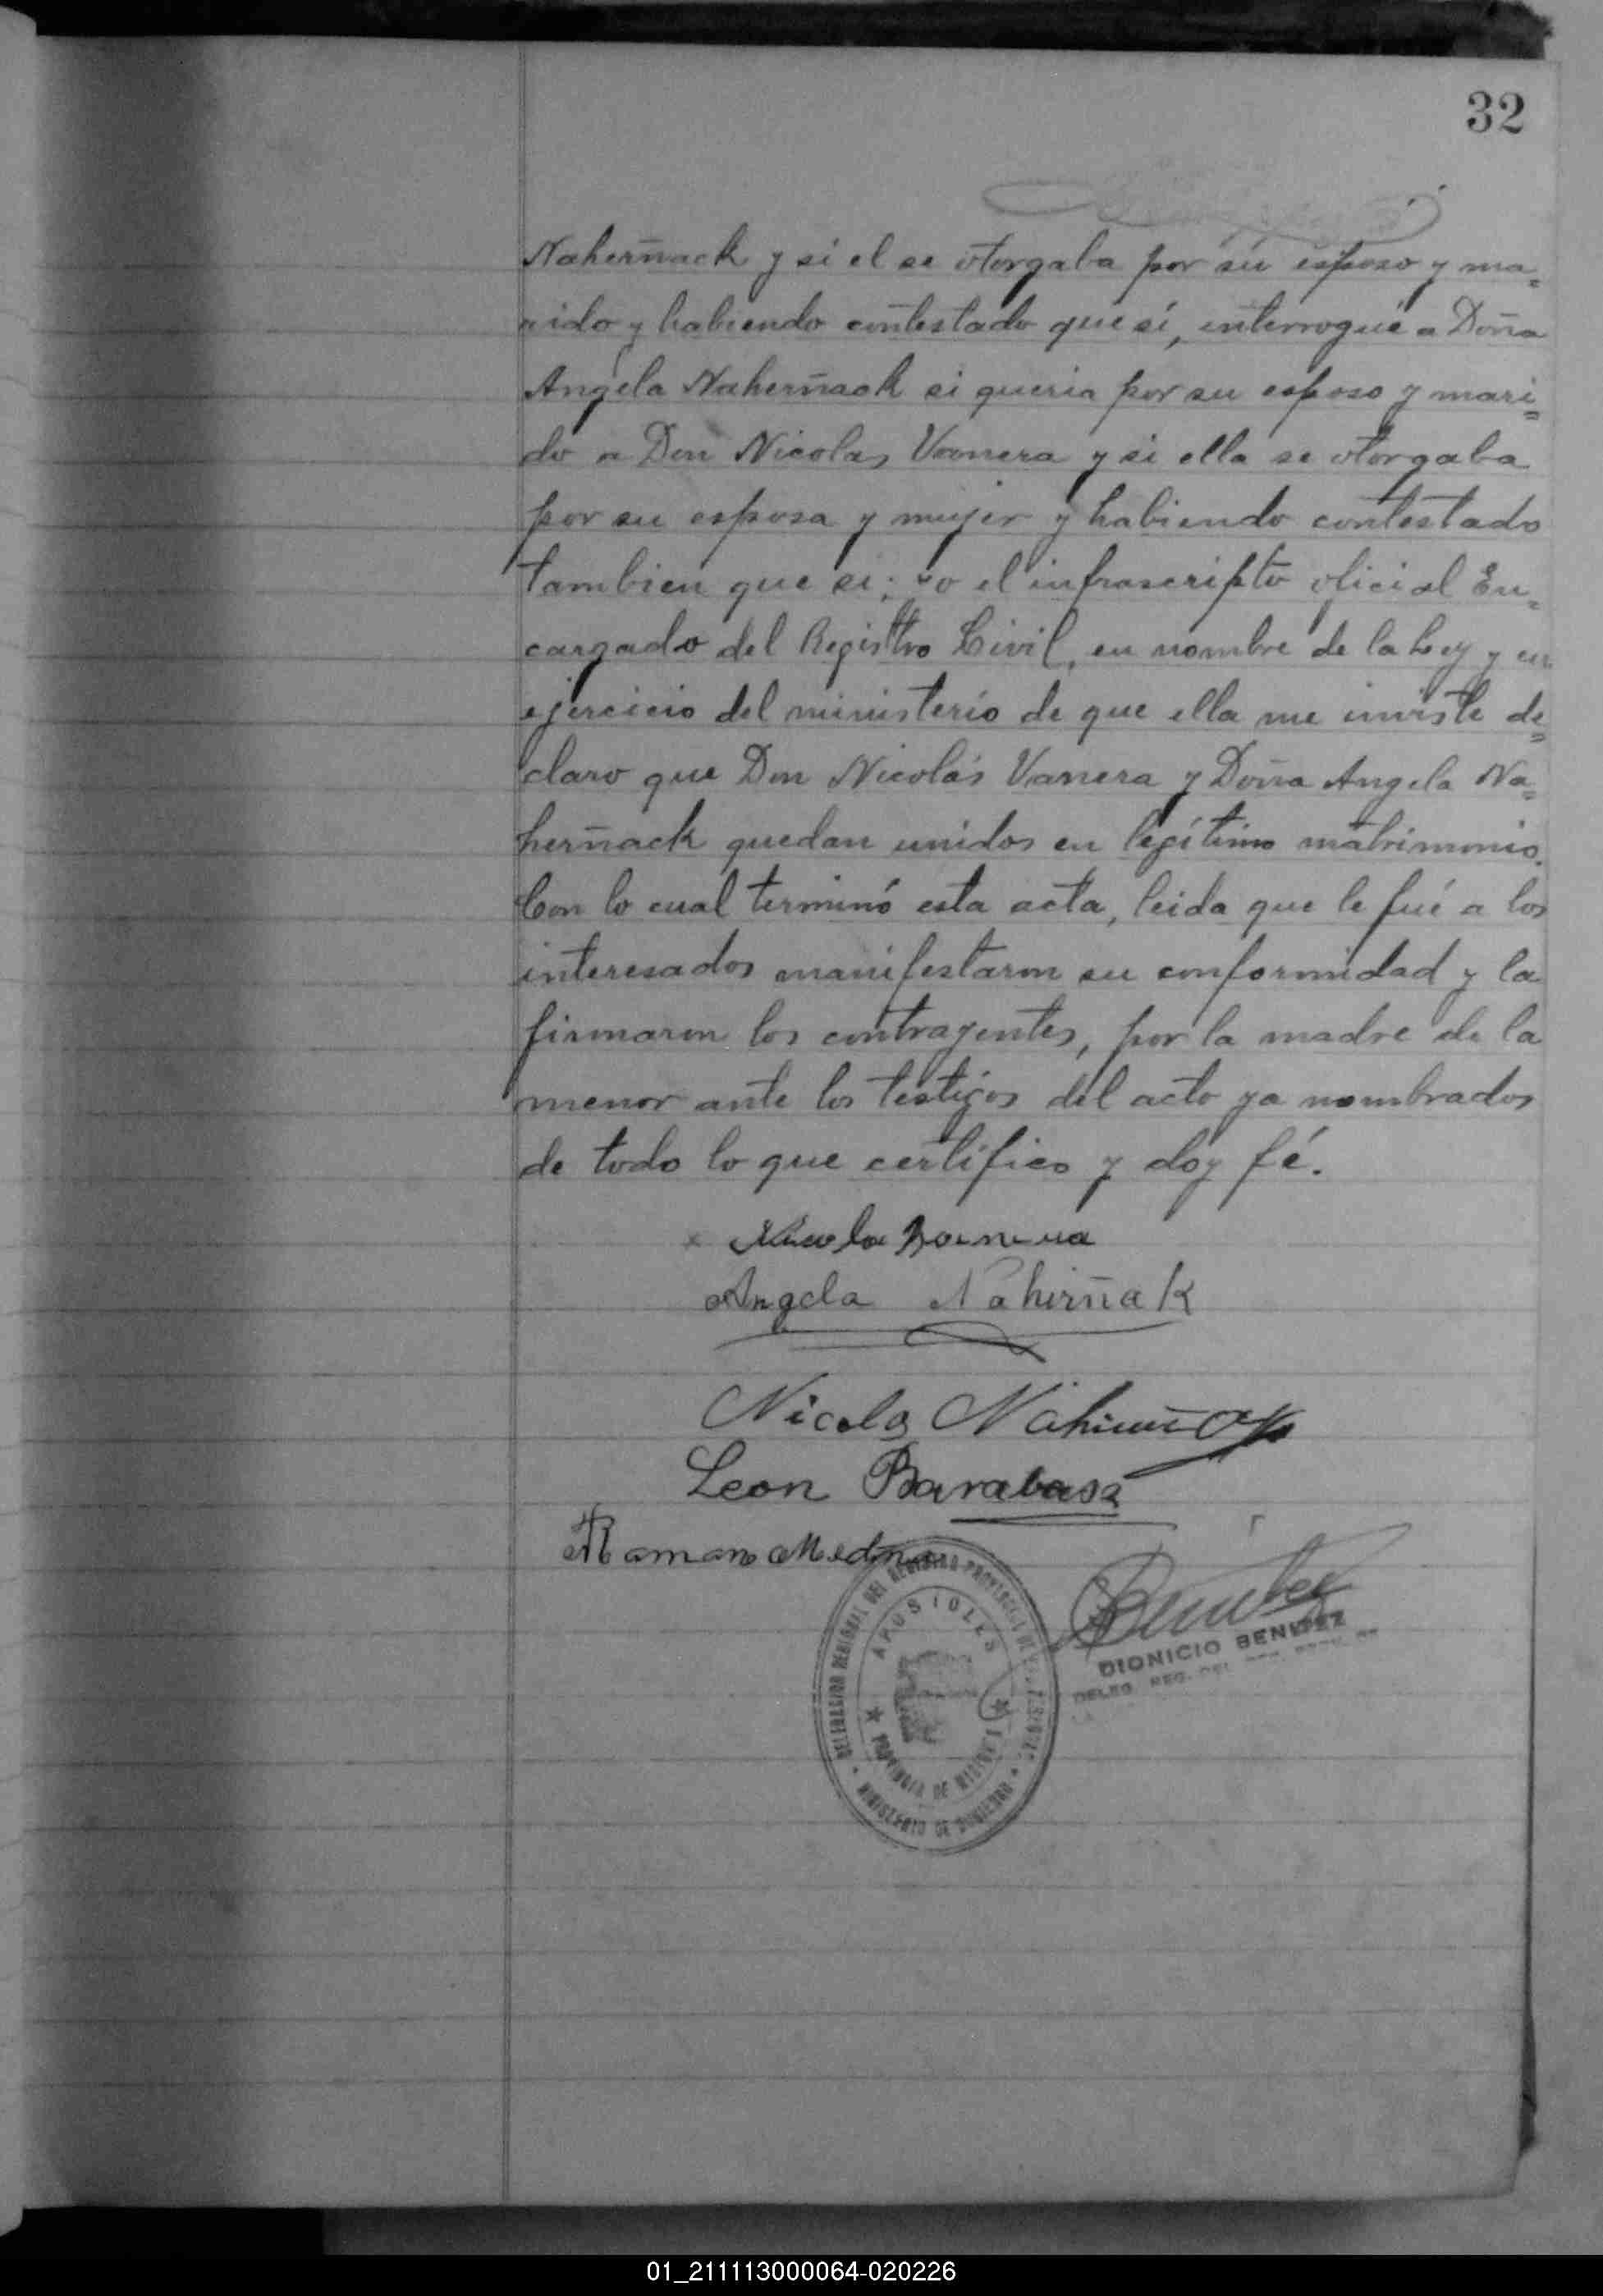 32
Naherñack y si el se otorgaba por su esposo y ma=
rido y habiendo contestado que sí, interrogué a Doña
Angela Naherñack si queria por su esposo y mari=
do a Don Nicolas Vanera y si ella se otorgaba
por su esposa y mujer y habiendo contestado
tambien que si; yo el infrascripto oficial En=
cargado del Registro Civil, en nombre de la Ley y en
ejercicio del ministerio de que ella me inviste de=
claro que Don Nicolás Vanera y Doña Angela Na=
herñack quedan unidos en legítimo matrimonio.
Con lo cual terminó esta acta, leida que le fué a los
interesados manifestaron su conformidad y la
firmaron los contrayentes, por la madre de la
menor ante los testigos del acto ya nombrados
de todo lo que certifico y doy fé.
Angela Nahirñak
Nicolas Nahirñak
Leon Barabasz
Ramon Medina
Benitez
DIONICIO BENITEZ
DELEG. REG. DEL
DELEGACION REGIONAL DEL REGISTRO PROVINCIAL DE LAS PERSONAS
APOSTOLES
PROVINCIA DE MISIONES
MINISTERIO DE GOBIERNO
01_211113000064-020226